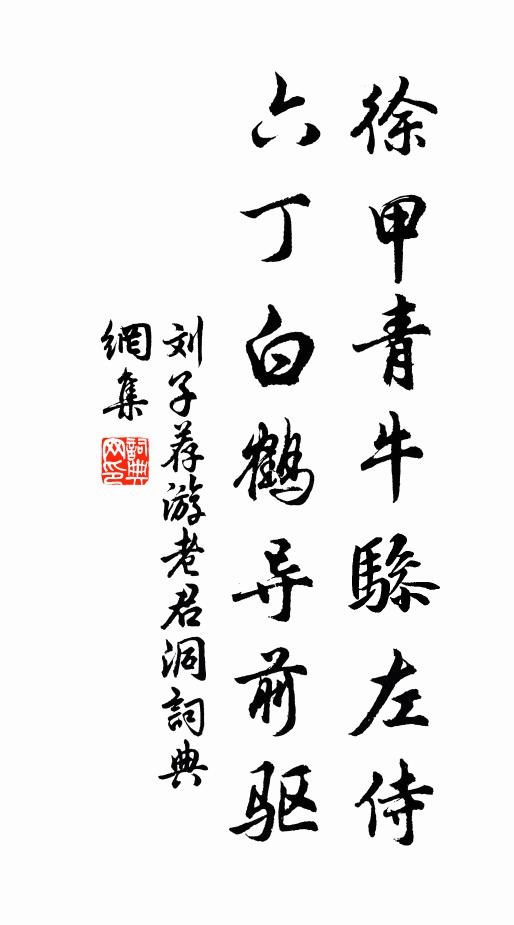 徐甲青牛騐左侍
六丁白鶴导前驱
刘子荐游老君洞詞典
網集
詞典
网印